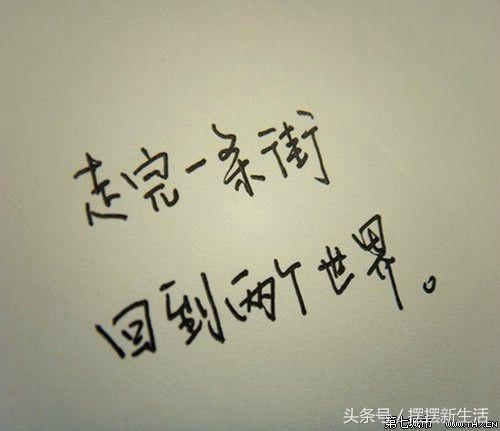 走完一条街
回到两个世界。
头条号/摆摆新生活
第七城市 WWW.TH7.CN